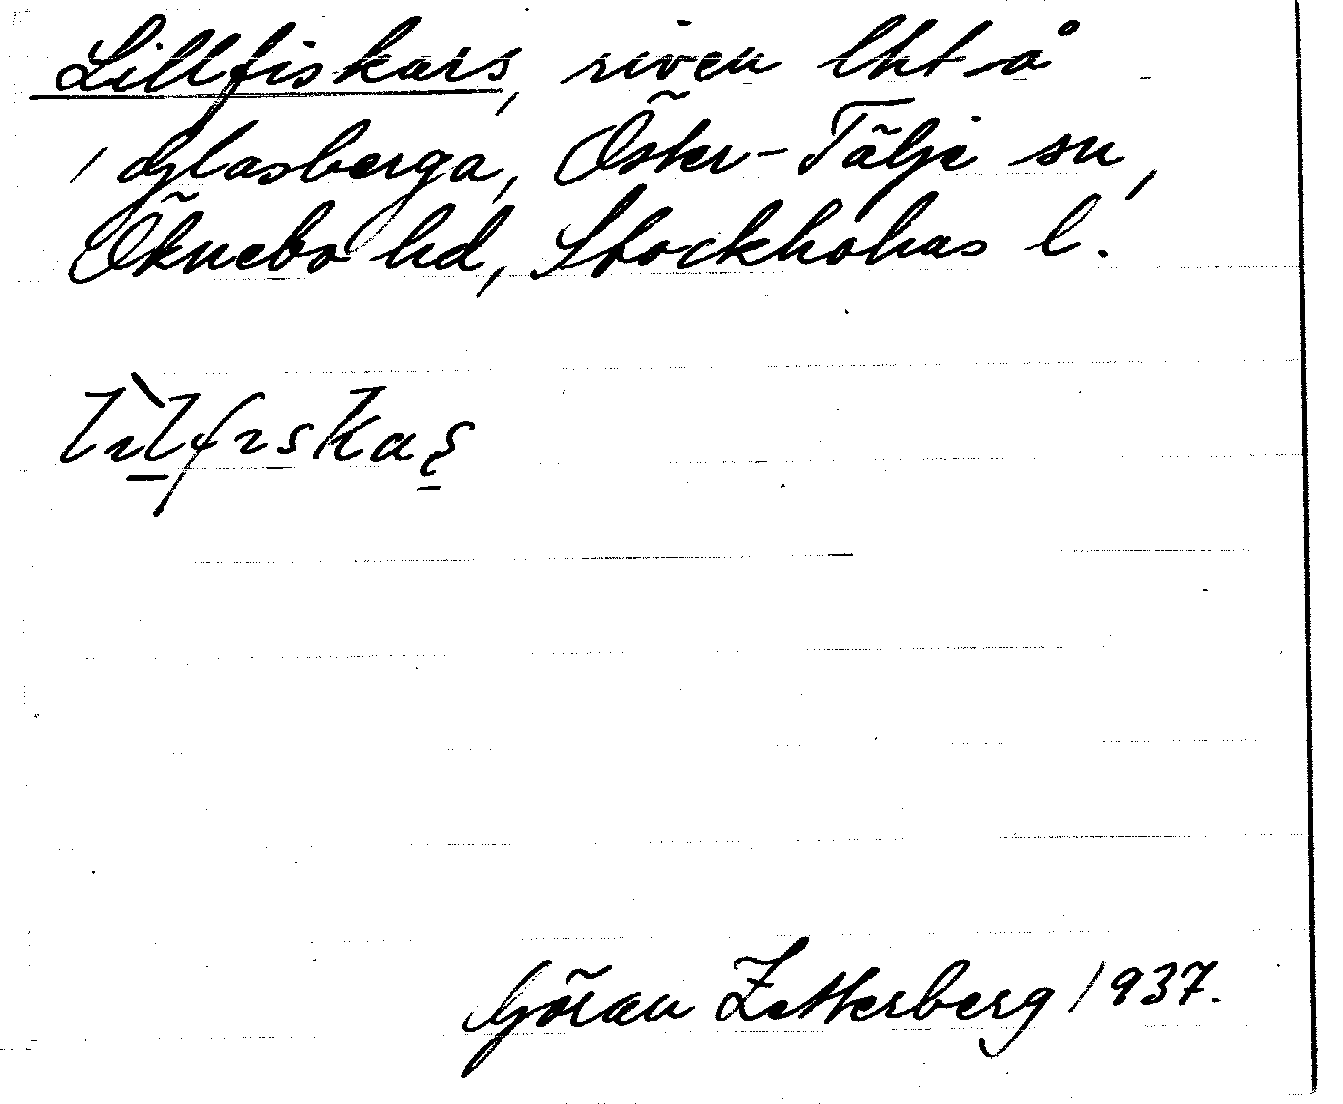 Lillfiskars, riven lht å
Glasberga, Öster-Tälje sn,
Öknebo hd, Stockholms l.
Göran Zetterberg 1937.